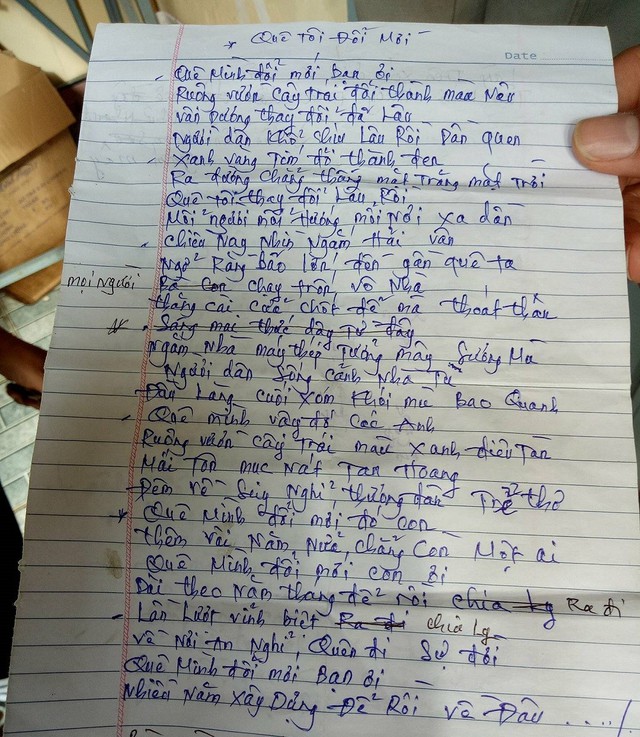 * Quê Tôi Đổi Mới
Date
- Quê Mình đổi mới Bạn ơi
Ruộng vườn cây trái đổi thành màu Nâu
vài Đường thay đổi đã Lâu
Người dân khổ chịu Lâu Rồi Dần quen
- Xanh vàng Tím đỏ thành đen
Ra đường chẳng thấy mặt Trăng mặt Trời
Quê tôi thay đổi Lâu Rồi
Mỗi người mỗi hướng mỗi Nơi xa dần
- Chiều Nay Nhìn Ngắm Hải Vân
Ngỡ Rằng bão Lớn đến gần quê ta
mọi người Bà Con chạy trốn vô Nhà
thắng cài cửa chốt để mà thoát thân
* - Sáng mai thức dậy Từ đây
Ngắm Nhà máy thép Tưởng mây Sương Mù
Người dân Sống cảnh Nhà Tù
Đầu Làng cuối Xóm khói mù Bao Quanh
- Quê mình vậy đó Các Anh
Ruộng vườn cây Trái màu Xanh điêu Tàn
Mái Tôn mục Nát Tan Hoang
Đêm về Suy Nghĩ thương đàn Trẻ thơ
* Quê Mình đổi mới đó con
thêm vài Năm Nữa chẳng Còn Một ai
Quê Mình đổi mới con ơi
Dài theo Năm tháng để rồi chia ly Ra đi
- Lần Lượt vĩnh biệt Ra đi chia ly
Về Nơi An Nghỉ Quên đi Sự đời
Quê Mình đổi mới Bạn ơi
Nhiều Năm Xây Dựng Để Rồi về Đâu ...../